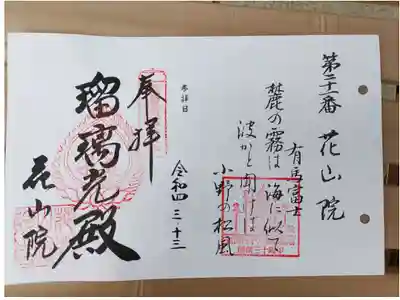 第二十一番 花山院
有馬富士
麓の霧は 海に似て
波かと聞けば
小野の松風
奉拝
参詣日
令和四 三・十三
瑠璃光殿
花山院